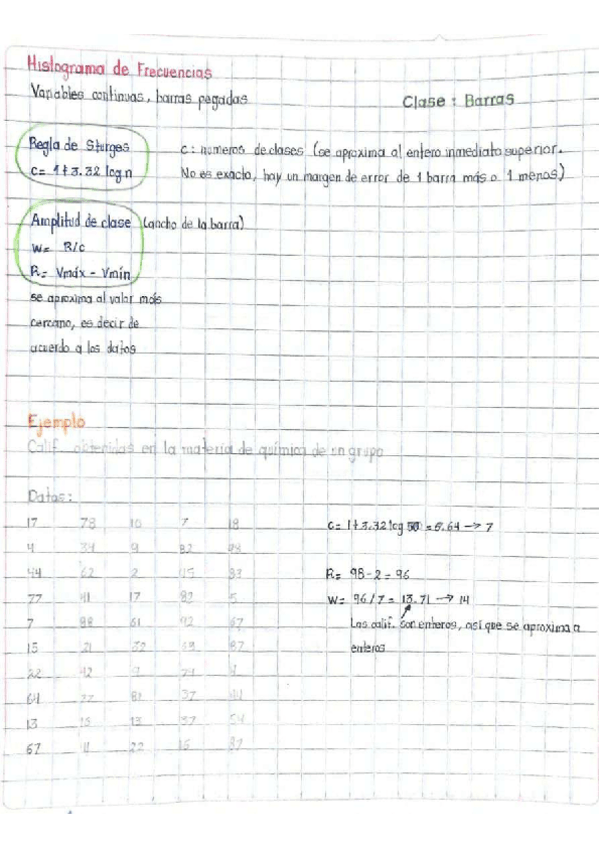 Histograma de Frecuencias
Variables continuas, barras pegadas
Clase: Barras
Regla de Sturges
C= 1+3.32 log n
c: numeros de clases (se aproxima al entero inmediato superior.
No es exacto, hay un margen de error de 1 barra más o 1 menos)
Amplitud de clase (ancho de la barra)
W= R/c
R= Vmáx - Vmín
se aproxima al valor más
cercano, es decir de
acuerdo a los datos
Ejemplo
Calif. obtenidas en la materia de química de un grupo
Datos:
17 78 10 7 18
C= 1+3.32 log 50 = 6.64 → 7
4 34 9 82
44 62 2 83
R= 98-2 = 96
77 41 17 82 5
W= 96/7 = 13.71 → 14
7 88 61 92 67
Las calif. son enteros, así que se aproxima a
15 21 32 87
enteros
22 42
64 37
13 13
67 22